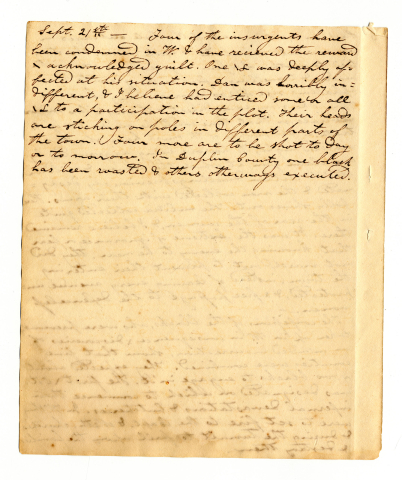 Sept. 21st — Four of the insurgents have
been condemned in W. & have received the reward
& acknowledged guilt. One & was deeply af-
fected at his situation. Dan was horribly in-
different, & I believe had enticed some or all
to a participation in the plot. Their heads
are sticking on poles in different parts of
the town. Four more are to be shot to Day
or to morrow. In Duplin County one black
has been roasted & others otherways executed.